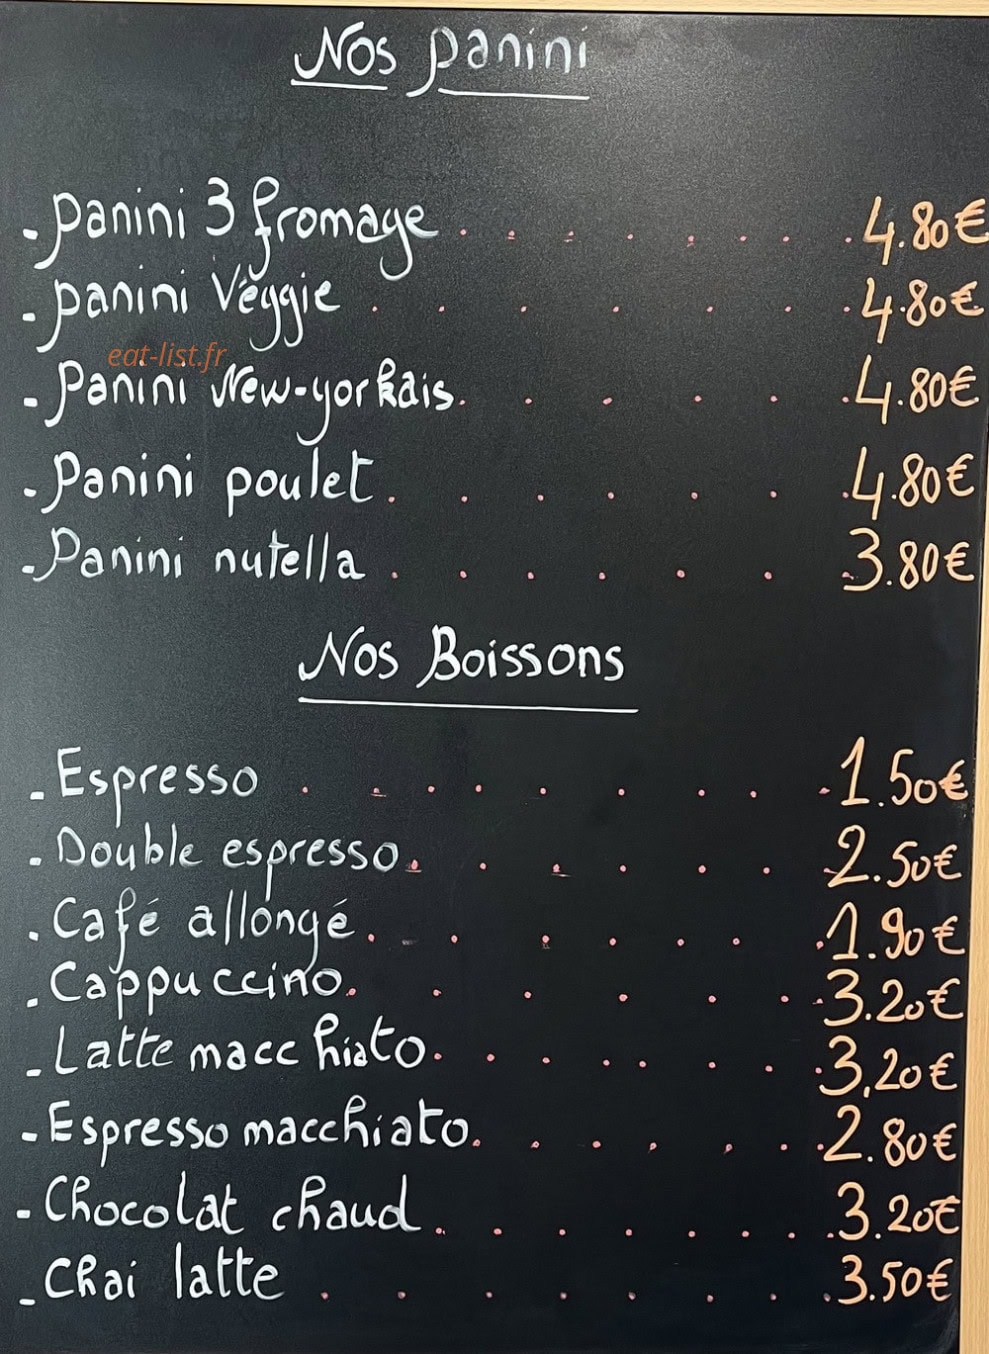 Nos panini
- Panini 3 fromage . . . . . . . . 4.80€
- Panini Véggie . . . . . . . 4.80€
eat-list.fr
- Panini New-yorkais. . . . . . 4.80€
- Panini poulet . . . . . . . 4.80€
- Panini nutella . . . . . . . 3.80€
Nos Boissons
- Espresso . . . . . . . . . 1.50€
- Double espresso . . . . . . . 2.50€
- Café allongé . . . . . . . 1.90€
- Cappuccino. . . . . . . . 3.20€
- Latte macchiato . . . . . . . . 3,20€
- Espresso macchiato. . . . . . . 2.80€
- Chocolat chaud . . . . . . . . 3.20€
- Chai latte . . . . . . . . 3.50€